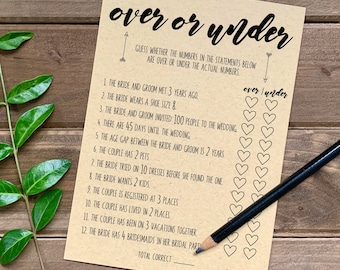 over or under
GUESS WHETHER THE NUMBERS IN THE STATEMENTS BELOW
ARE OVER OR UNDER THE ACTUAL NUMBERS
over | under
1. THE BRIDE AND GROOM MET 3 YEARS AGO.
2. THE BRIDE WEARS A SHOE SIZE 8.
3. THE BRIDE AND GROOM INVITED 100 PEOPLE TO THE WEDDING.
4. THERE ARE 45 DAYS UNTIL THE WEDDING.
5. THE AGE GAP BETWEEN THE BRIDE AND GROOM IS 2 YEARS.
6. THE COUPLE HAS 2 PETS.
7. THE BRIDE TRIED ON 10 DRESSES BEFORE SHE FOUND THE ONE.
8. THE BRIDE WANTS 2 KIDS.
9. THE COUPLE IS REGISTERED AT 3 PLACES.
10. THE COUPLE HAS LIVED IN 2 PLACES.
11. THE COUPLE HAS BEEN ON 3 VACATIONS TOGETHER.
12. THE BRIDE HAS 4 BRIDESMAIDS IN HER BRIDAL PARTY
TOTAL CORRECT